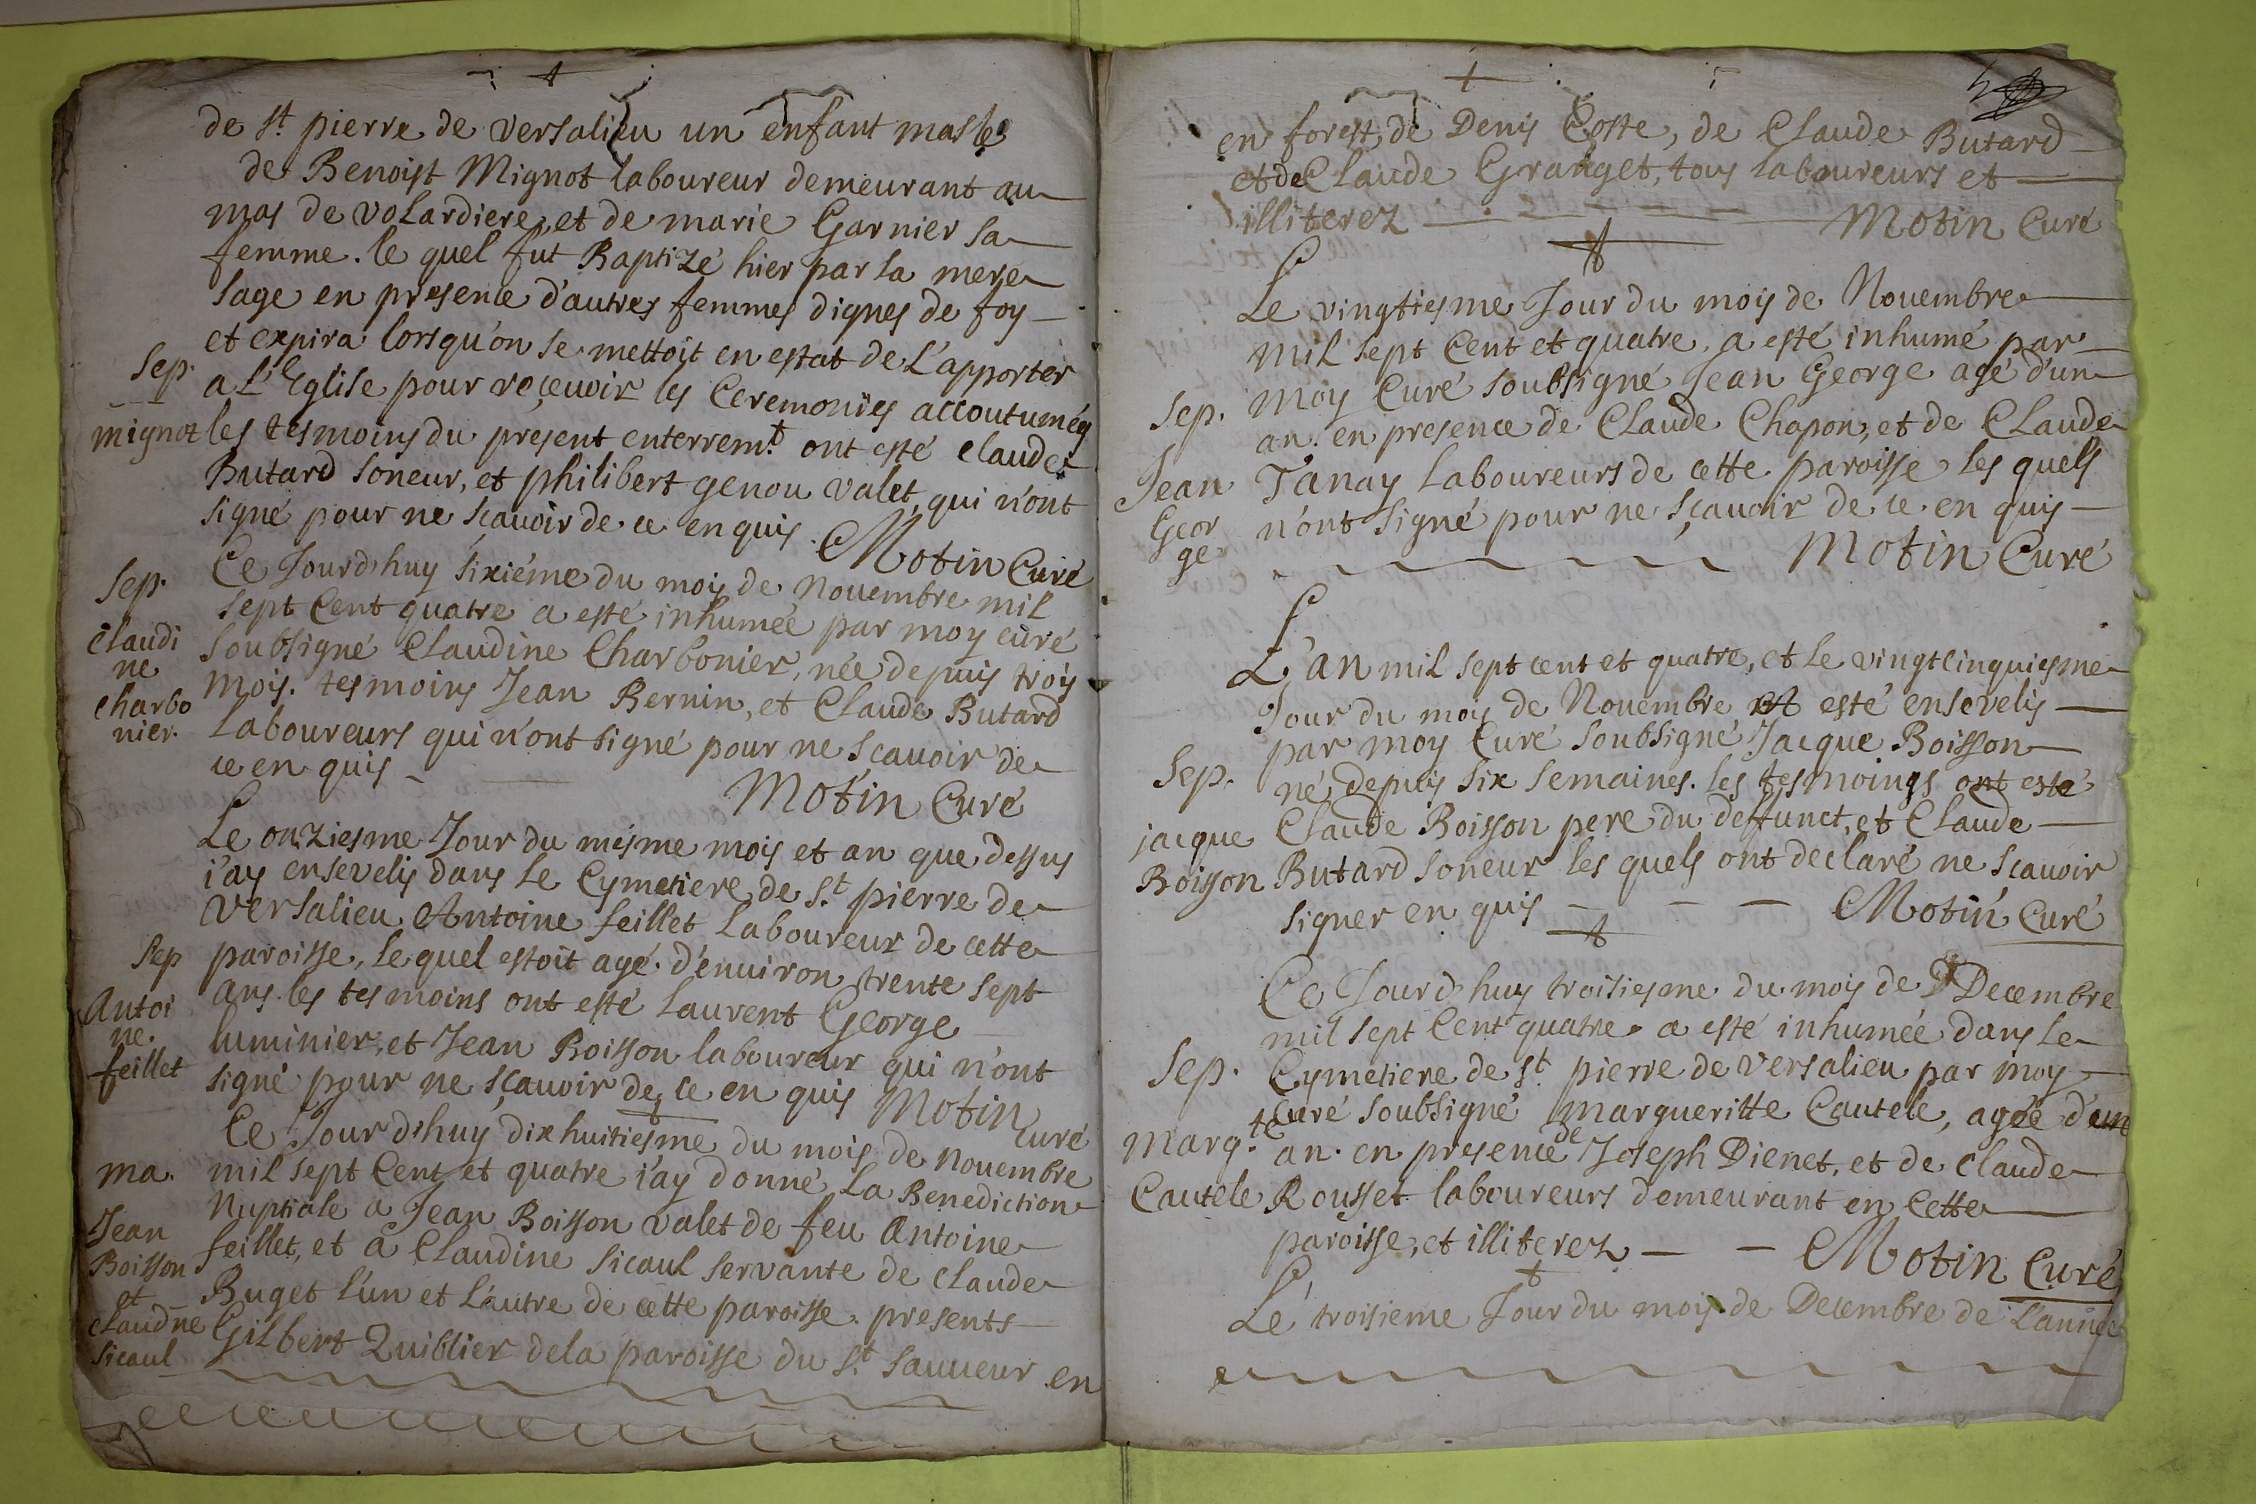 de st pierre de versalieu un enfant masle
de Benoist Mignot laboureur demeurant au
mas de volardiere, et de marie Garnier sa
femme. le quel fut Baptizé hier par la mere
sage en presence d'autres femmes dignes de foy
et expira lorsqu'on se mettoit en estat de l'apporter
a l'Eglise pour recevoir les ceremonies accoutumées
les tesmoins du present enterremt. ont esté claude
Butard soneur, et philibert genou valet, qui n'ont
signé pour ne sçavoir de ce enquis. Motin Curé
Sep.
mignot
Ce Jourd'huy sixiéme du mois de Novembre mil
sept Cent quatre a esté inhumée par moy curé
soubsigné Claudine Charbonier, née depuis trois
mois. tesmoins Jean Bernin, et Claude Butard
Laboureurs qui n'ont signé pour ne scavoir de
ce en quis
Motin Curé
Sep.
Claudi
ne
Charbo
nier.
Le onziesme Jour du mesme mois et an que dessus
j'ay ensevelis dans le Cymetiere de St. pierre de
versalieu Antoine feillet Laboureur de cette
paroisse, lequel estoit agé d'environ trente sept
ans. les tesmoins ont esté Laurent George
luminier, et Jean Boisson laboureur qui n'ont
signé pour ne sçavoir de ce en quis Motin
curé
Sep
Antoi
ne.
feillet
Ce Jour d'huy dixhuitiesme du mois de Novembre
mil sept Cent et quatre j'ay donné La Benediction
Nuptiale a Jean Boisson valet de feu Antoine
feillet, et a Claudine Sicaul servante de claude
Buget l'un et l'autre de cette paroisse. presents
Gilbert Quiblier dela paroisse du St. Sauveur en
ma.
Jean
Boisson
et
Claudne
Sicaul
en forest, de Denis Coste, de Claude Butard
et de Claude Granget, tous laboureurs et
illiterez Motin Curé
Le vingtiesme Jour du mois de Novembre
mil sept Cent et quatre, a esté inhumé par
moy Curé soubsigné Jean George agé d'un
an. en presence de Claude Chapon, et de Claude
Tanay laboureurs de cette paroisse les quels
n'ont signé pour ne sçavoir de ce en quis
Motin Curé
Sep.
Jean
Geor
ge
L'an mil sept cent et quatre, et le vingtcinquiesme
Jour du mois de Novembre a esté ensevelis
par moy Curé soubsigné Jacque Boisson
né depuis six semaines. les tesmoings ont esté
Claude Boisson pere du deffunct, et Claude
Butard soneur les quels ont declaré ne scavoir
signer en quis Motin Curé
Sep.
jacque
Boisson
Ce Jourd'huy troisiesme du mois de Decembre
mil sept Cent quatre a esté inhumée dans le
Cymetiere de St. pierre de versalieu par moy
Curé soubsigné margueritte Cautele, agée d'un
an. en presence de Joseph Dienet, et de Claude
Rousset laboureurs demeurant en cette
paroisse, et illiterez Motin Curé
Sep.
Marg.te
Cautele
Le troisieme Jour du mois de Decembre de l'année